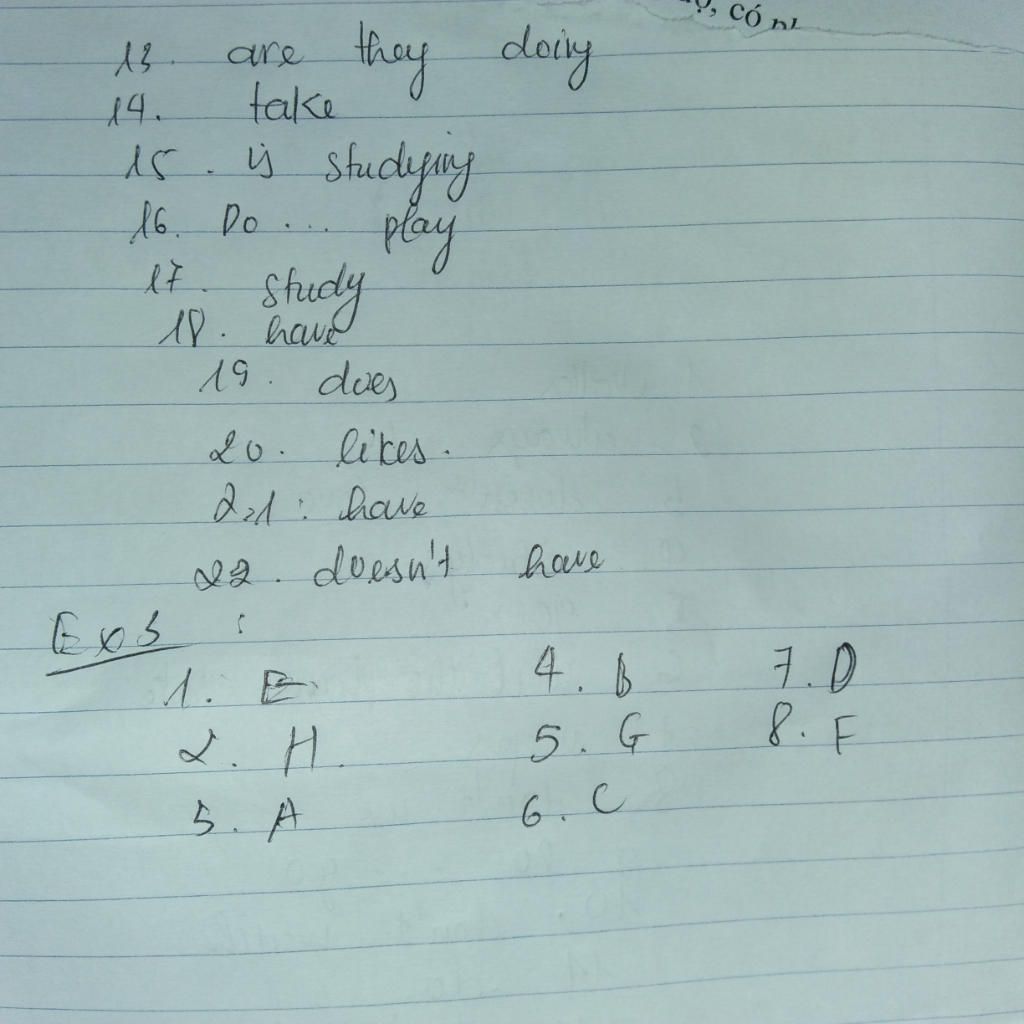 ọ, có
13. are they doing
14. take
15. is studying
16. Do ... play
17. study
18. have
19. does
20. likes.
21: have
22. doesn't have
Ex3:
1. E 4. B 7. D
2. H. 5. G 8. F
3. A 6. C